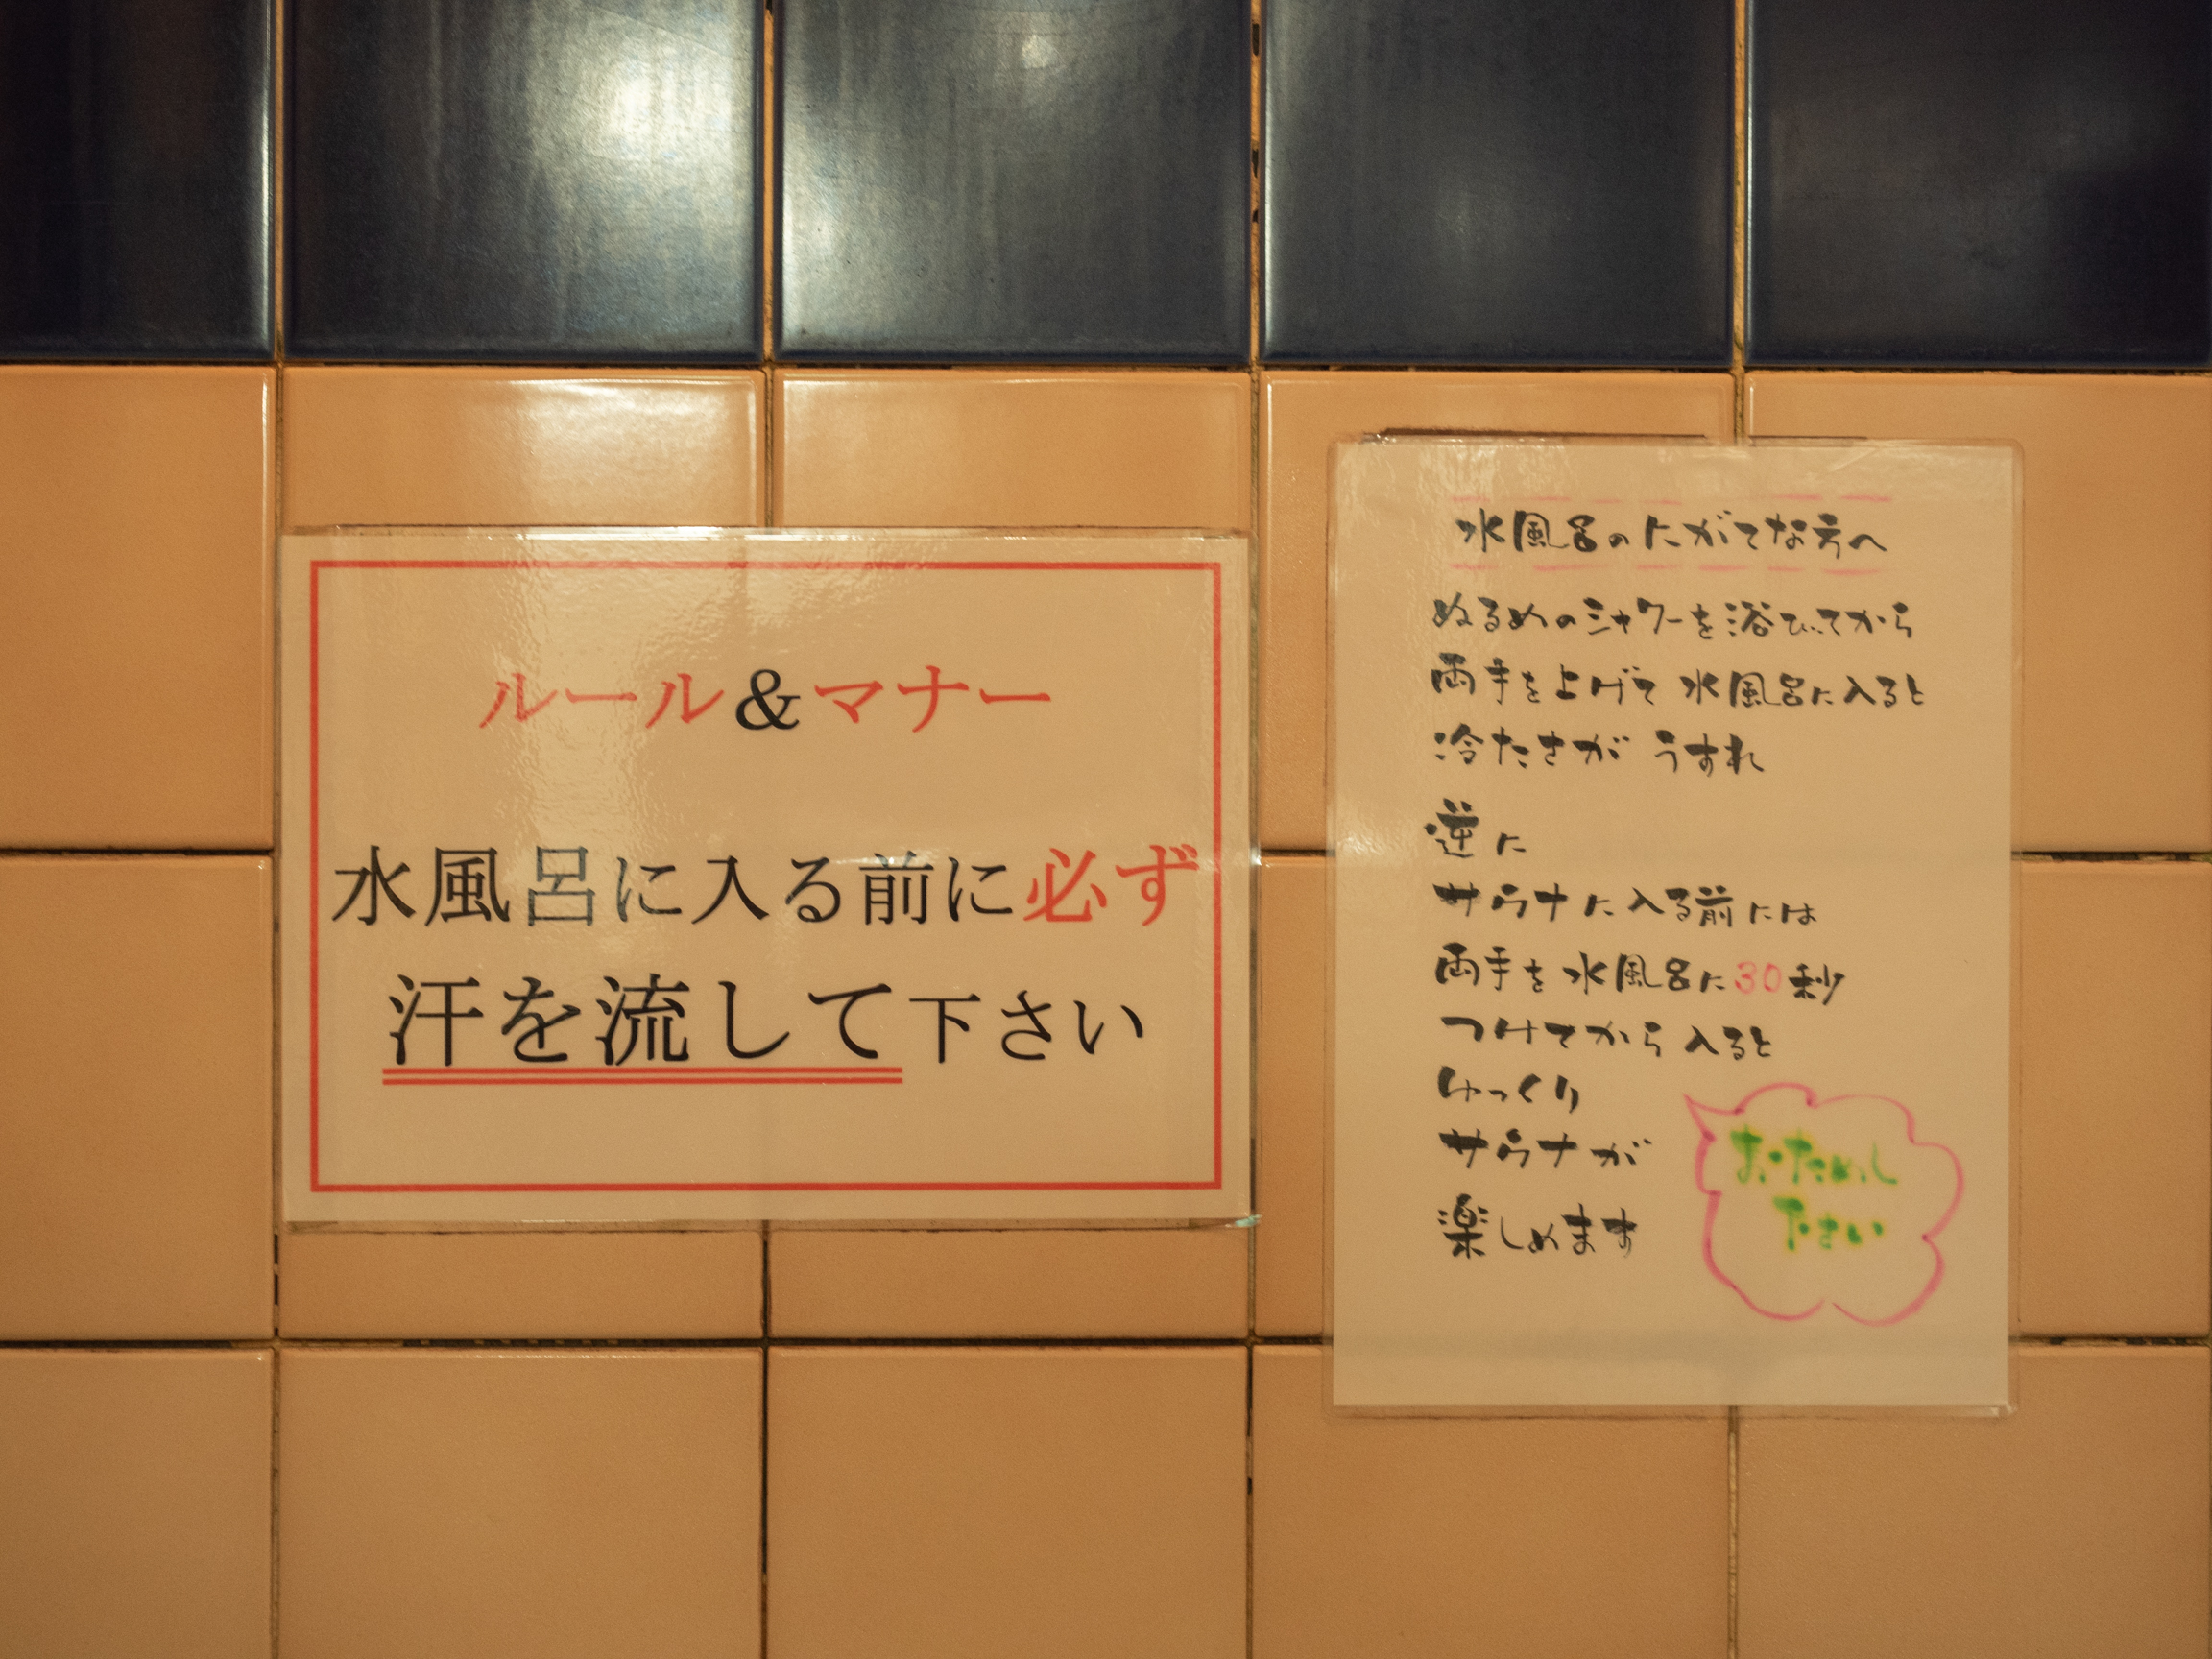 ルール&マナー
水風呂に入る前に必ず
汗を流して下さい
水風呂のにがてな方へ
ぬるめのシャワーを浴びてから
両手を上げて 水風呂に入ると
冷たさが うすれ
逆に
サウナに入る前には
両手を水風呂に30秒
つけてから入ると
ゆっくり
サウナが
楽しめます
おためし
下さい